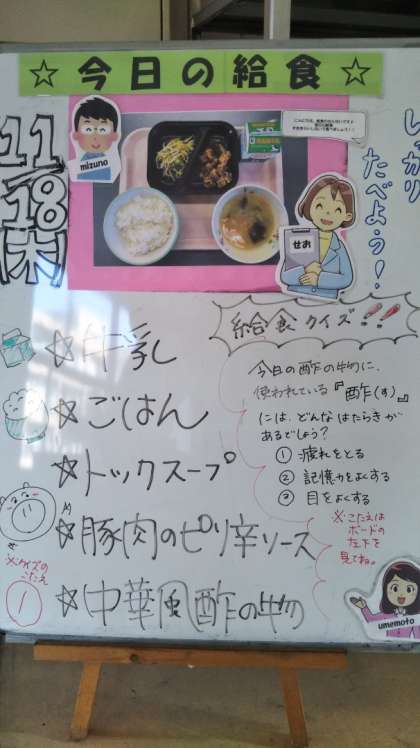 ☆今日の給食☆
11/18(木)
mizuno
せお
しっかり
たべよう！
給食クイズ!!
今日の酢の物に、
使われている『酢(す)』
には、どんなはたらきが
あるでしょう？
① 疲れをとる
② 記憶力をよくする
③ 目をよくする
※こたえは
ボードの
左下を
見てね。
☆牛乳
☆ごはん
☆トックスープ
☆豚肉のピリ辛ソース
☆中華風酢の物
※クイズの
こたえ
①
umemoto